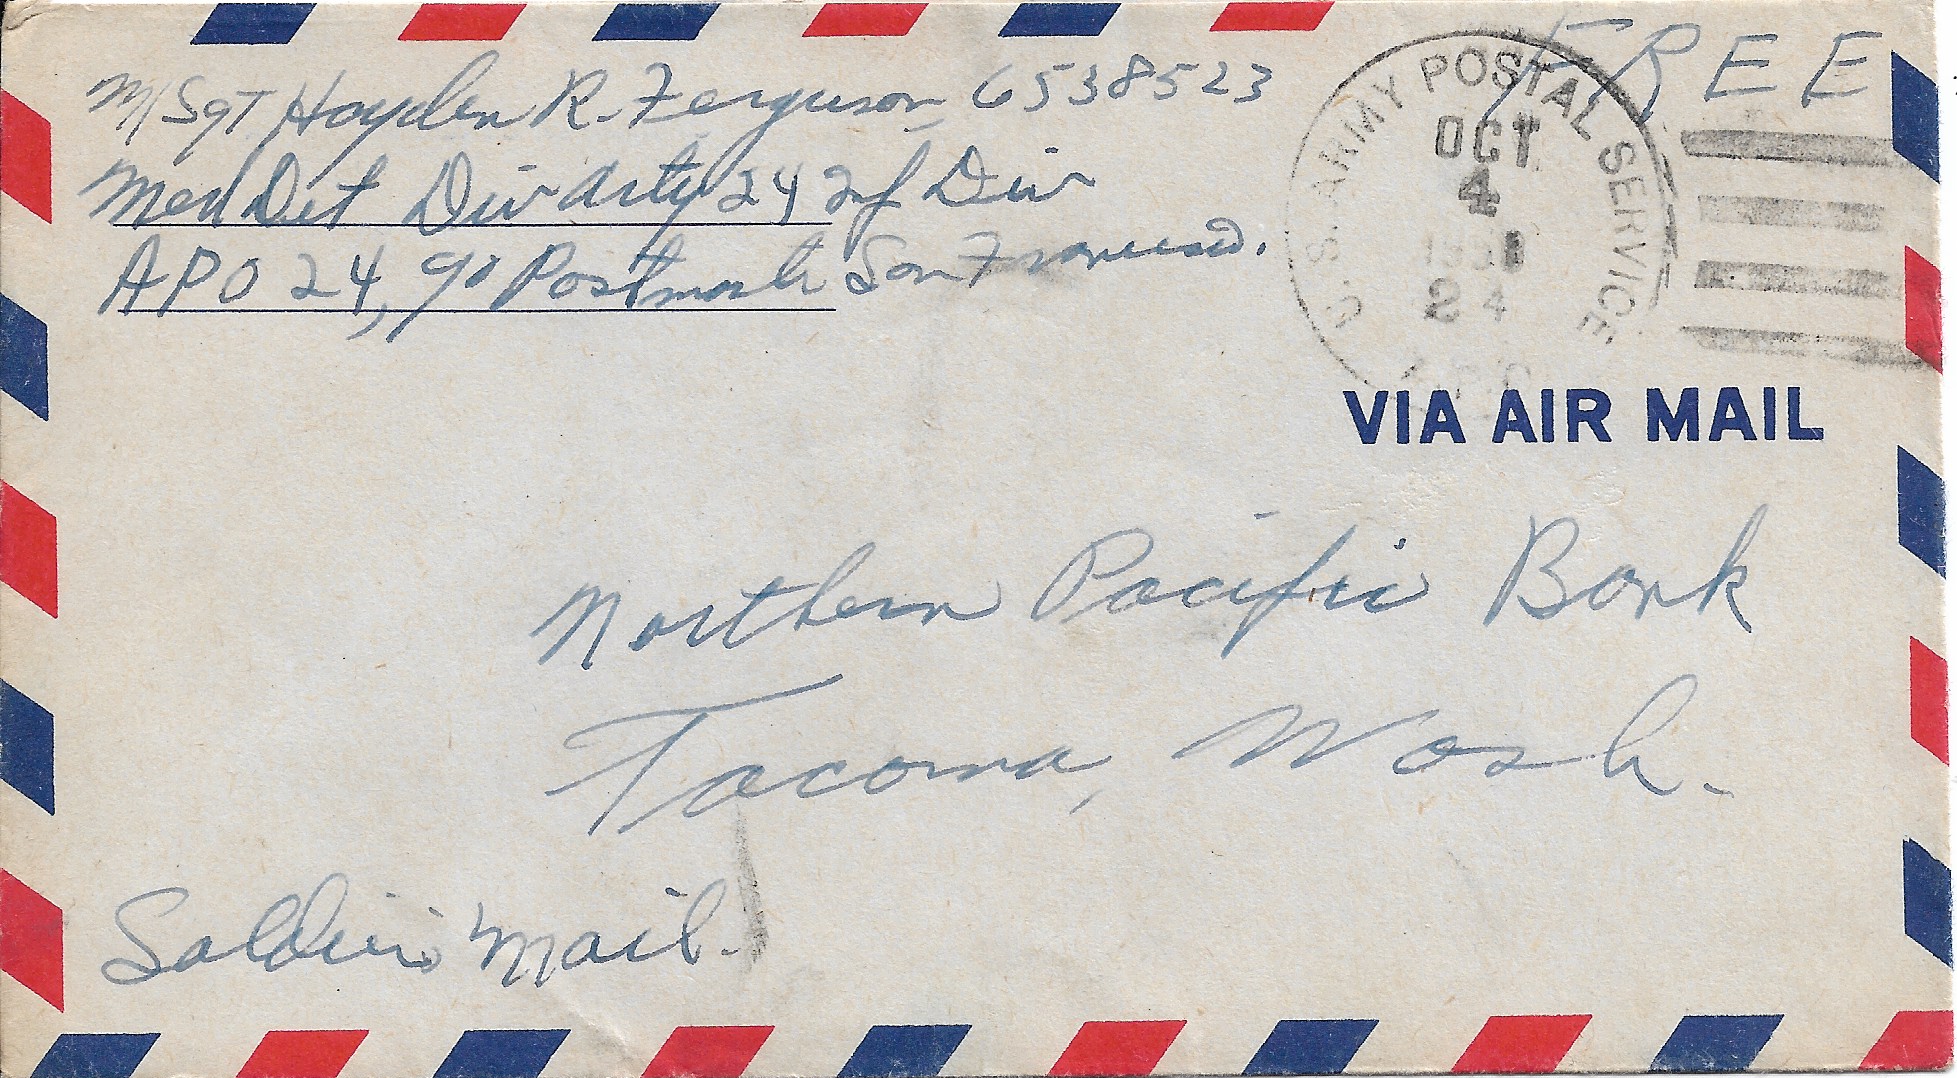 M/Sgt Hayden R. Ferguson 6538523
Med Det Div Arty 24 Inf Div
APO 24, % Postmaster San Francisco.
FREE
U.S. ARMY POSTAL SERVICE
OCT
4
24
A.P.O.
VIA AIR MAIL
Northern Pacific Bank
Tacoma, Wash.
Soldier's Mail.